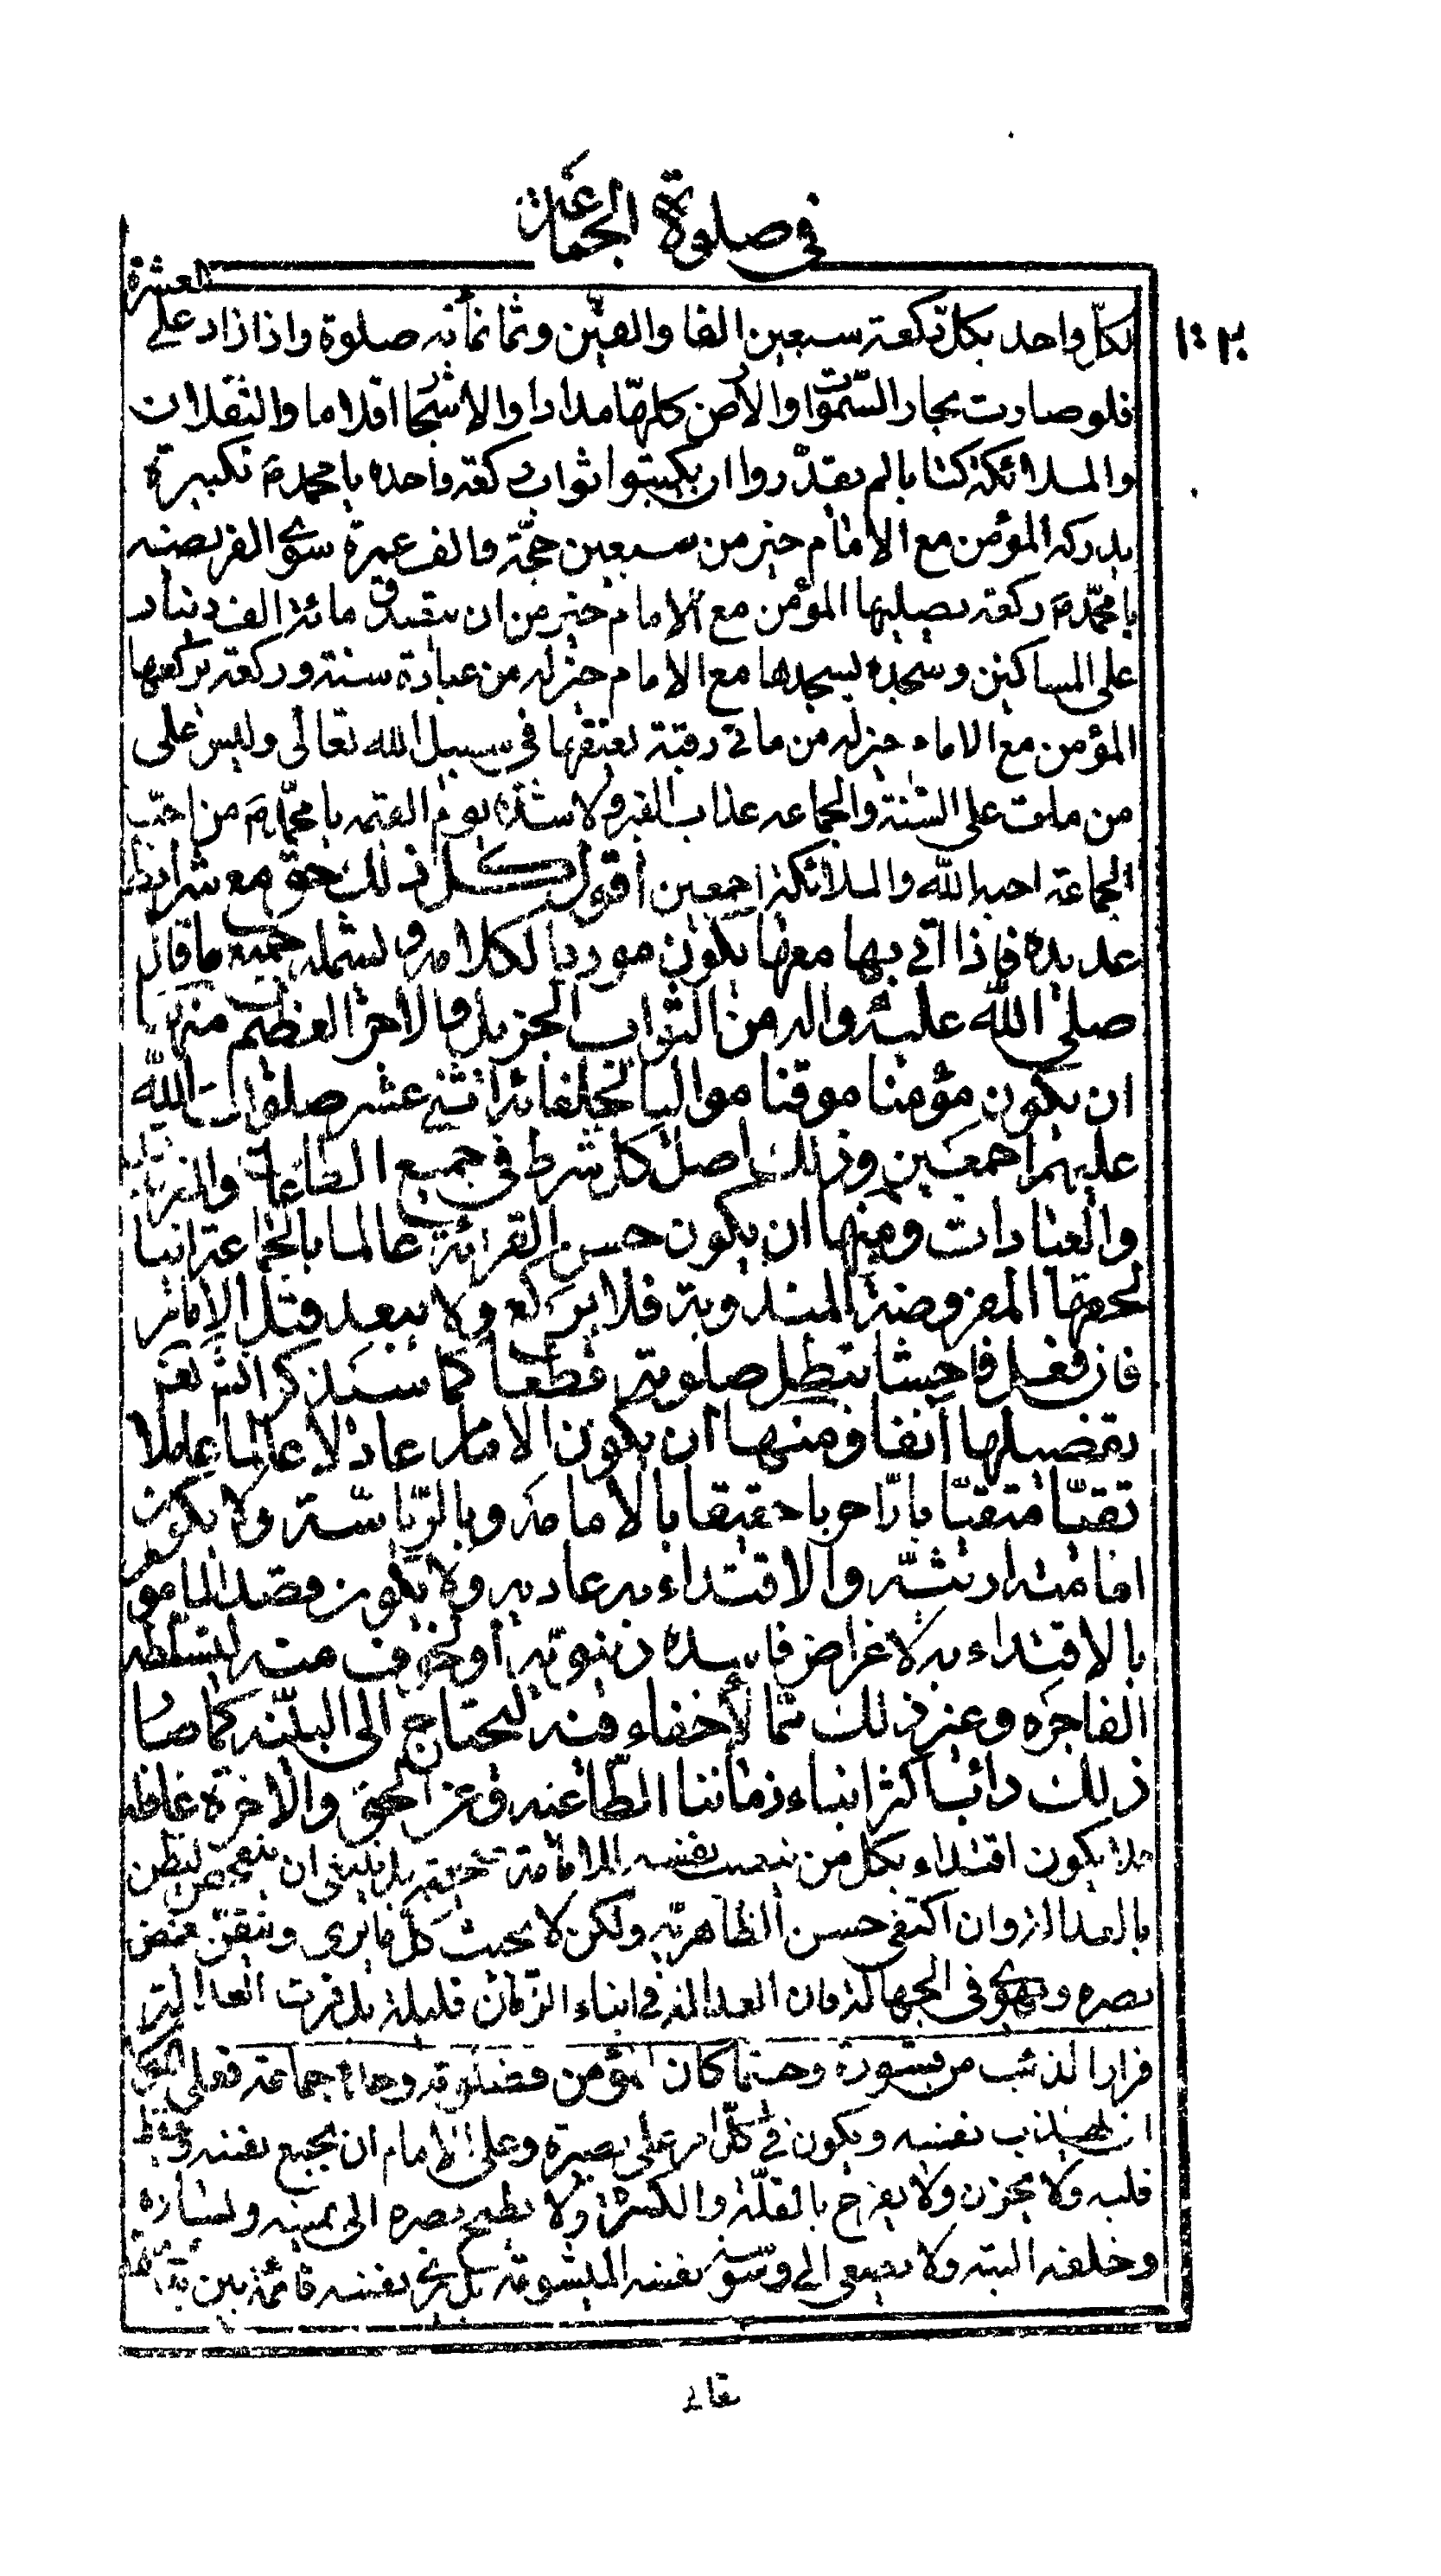 في صلوة الجماعة
١٠٢
العشرة
لكلّ واحد بكلّ ركعة سبعين الفا والفين وثمانمأته صلوة واذا زاد على
فلو صارت بحار السّموات والارض كلهّا مدادا والاشجار اقلاما والثقلان
والملائكة كتابا لم يقدّروا ان يكتبوا ثواب ركعة واحدة يا محمدم تكبيرة
يدركه المؤمن مع الامام خير من سبعين حجّة والف عمرة سوى الفريضة
يا محمّدم ركعة يصليها المؤمن مع الامام خير من ان يتصدق مائة الف دينار
على المساكين وسجدة يسجدها مع الامام خير له من عبادة سنة وركعة يركعها
المؤمن مع الامام خير له من مأتي رقبة يعتقها في سبيل الله تعالى وليس على
من مات على السّنة والجماعه عذاب القبر ولا شدّة يوم القيمه يا محمّدم من احبّ
الجماعة احبه الله والملائكة اجمعين اقول كل ذلك حق مع شرايط
عديدة فاذا اتى بها معها يكون موردا لكلامه ويشمله جميع ما قال
صلى الله عليه واله من الثواب الجزيل والاجر العظيم منها
ان يكون مؤمنا موقنا مواليا لخلفائه اثني عشر صلوات الله
عليهم اجمعين وذلك اصل كل شرط في جميع الطاعات
والعبادات ومنها ان يكون حسن القرائة عالما بالجماعة اتيا
لحقها المفروضة المندوبة فلا يركع ولا يبعد قبل الامام
فان فعل فاحشا يبطل صلوته قطعا كما سنذكر انش تعم
تفصيلها آنفا ومنها ان يكون الامام عادلا عالما عاملا
تقيّا متقيّا بارّا حريا حقيقا بالامامة وبالرّياسّة ولا يكون
والاقتداء به عادية ولا يكون قصد المامو
بالاقتداء به لاغراض فاسدة دنيوية او لخوف منه لسلطه
الفاجرة وغير ذلك ممّا لا خفاء فيه ليحتاج الى البيّنة كما صار
ذلك دائب اكثر ابناء زماننا الطّاغية وعن الحق والاخرة غافله
فلا يكون اقتداء بكل من ينصب نفسه للامامة بل ينبغي ان يتفحص ليظن
بالعدالة وان اكتفى حسن الظاهرية ولكن لا بحيث كل ما يرى ويتيقن غمض
بصره في الجهالة فان العدالة في ابناء الزّمان قليلة بل فرت العدالة
فرار الذئب من قسورة وحيثما كان المؤمن جماعة فعلى
ان يهذب نفسه ويكون في كلّ امر على بصيرة وعلى الامام ان يجمع نفسه
قلبه ولا يحزن ولا يفرح بالقلّة والكثرة ولا يطيح بصره الى يمينه ويساره
وخلفه البتة ولا يصغى الى نفسه الميشومة بل يرى نفسه قائمة بين
تعالى